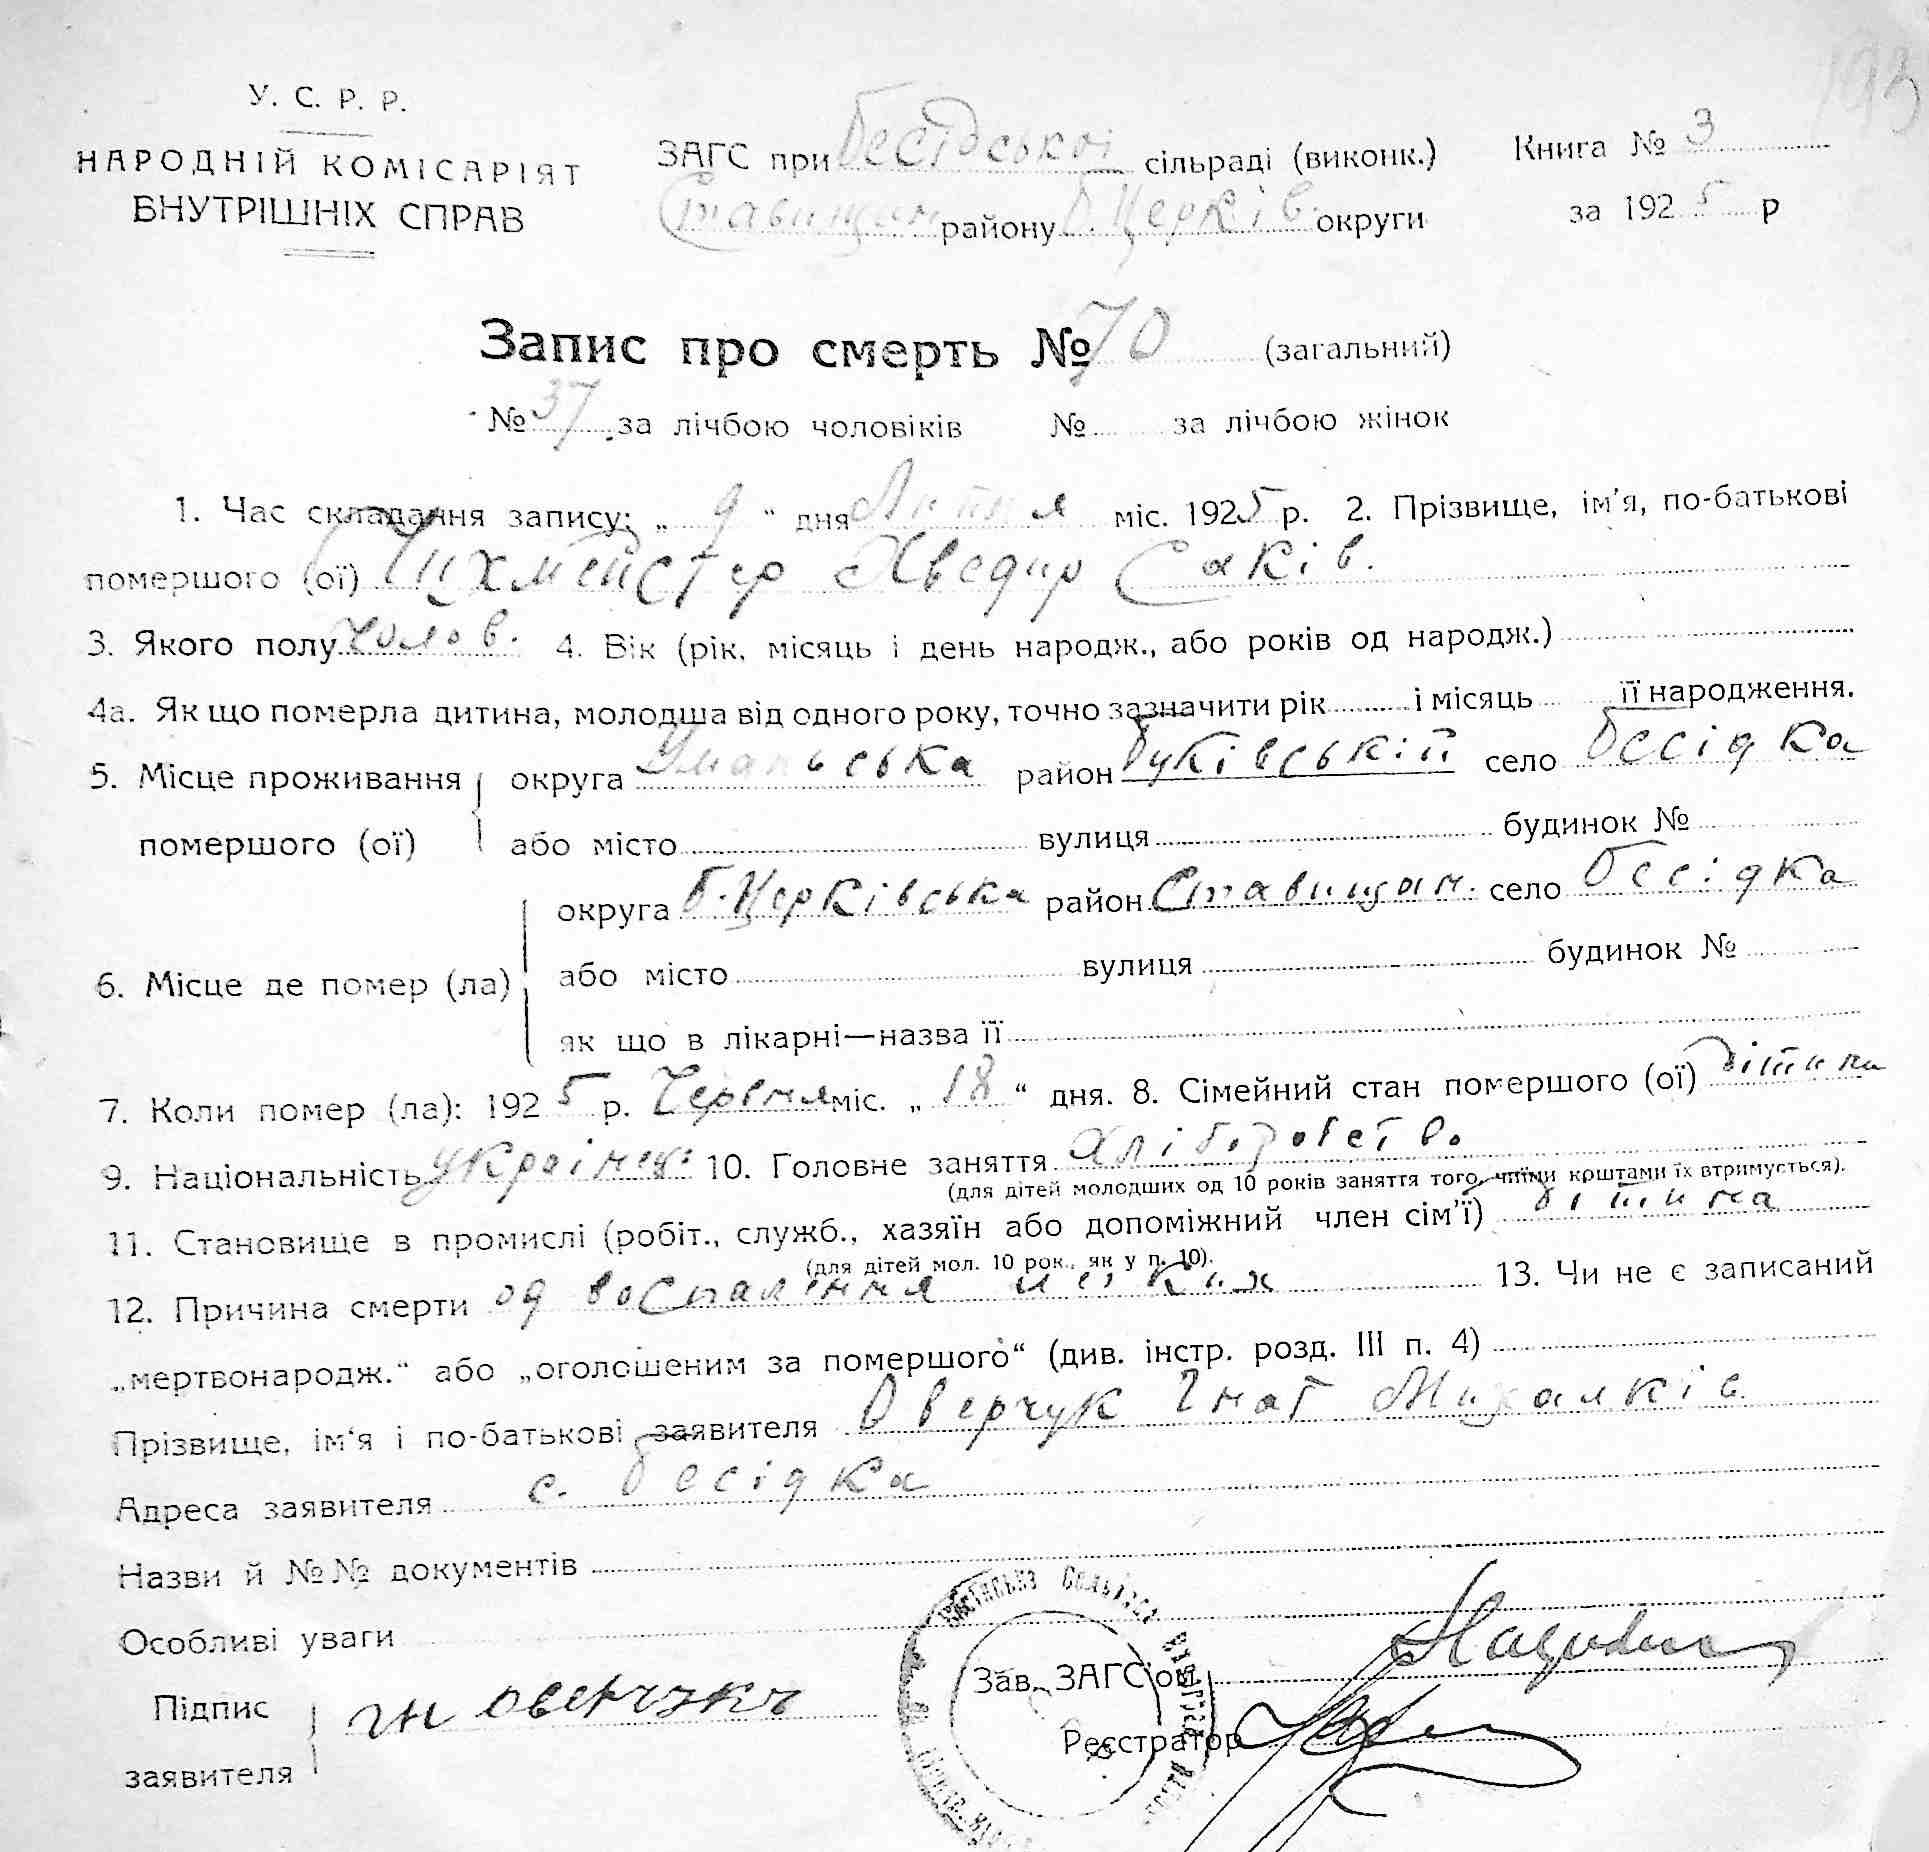 193
У. С. Р. Р.
НАРОДНІЙ КОМІСАРІЯТ
ВНУТРІШНІХ СПРАВ
ЗАГС при Бесідській сільраді (виконк.)
Ставищан району Б. Церків. округи
Книга № 3
за 1925 р
Запис про смерть № 70 (загальний)
№ 37 за лічбою чоловіків № за лічбою жінок
1. Час складання запису: „ 9 “ дня Липня міс. 1925 р. 2. Прізвище, ім’я, по-батькові
помершого (ої) Цихмейстер Хведир Саків.
3. Якого полу чолов. 4. Вік (рік, місяць і день народж., або років од народж.)
4а. Як що померла дитина, молодша від одного року, точно зазначити рік і місяць її народження.
5. Місце проживання помершого (ої) округа Уманська район Буківський село Бесідка
або місто вулиця будинок №
6. Місце де помер (ла) округа Б. Церківська район Ставищан. село Бесідка
або місто вулиця будинок №
як що в лікарні—назва її
7. Коли помер (ла): 1925 р. Червня міс. „ 18 “ дня. 8. Сімейний стан помершого (ої) дітина
9. Національність україн. 10. Головне заняття Хліборобство.
(для дітей молодших од 10 років заняття того, чиїми коштами їх втримується).
11. Становище в промислі (робіт., служб., хазяїн або допоміжний член сім’ї) дітина
(для дітей мол. 10 рок., як у п. 10).
12. Причина смерти од воспалення 13. Чи не є записаний
„мертвонародж.“ або „оголошеним за помершого“ (див. інстр. розд. III п. 4)
Прізвище, ім‘я і по-батькові заявителя Оверчук Гнат Михалків.
Адреса заявителя с. Бесідка
Назви й №№ документів
Особливі уваги
Підпис заявителя гн оверчукъ
Зав. ЗАГС’ом
Реєстратор